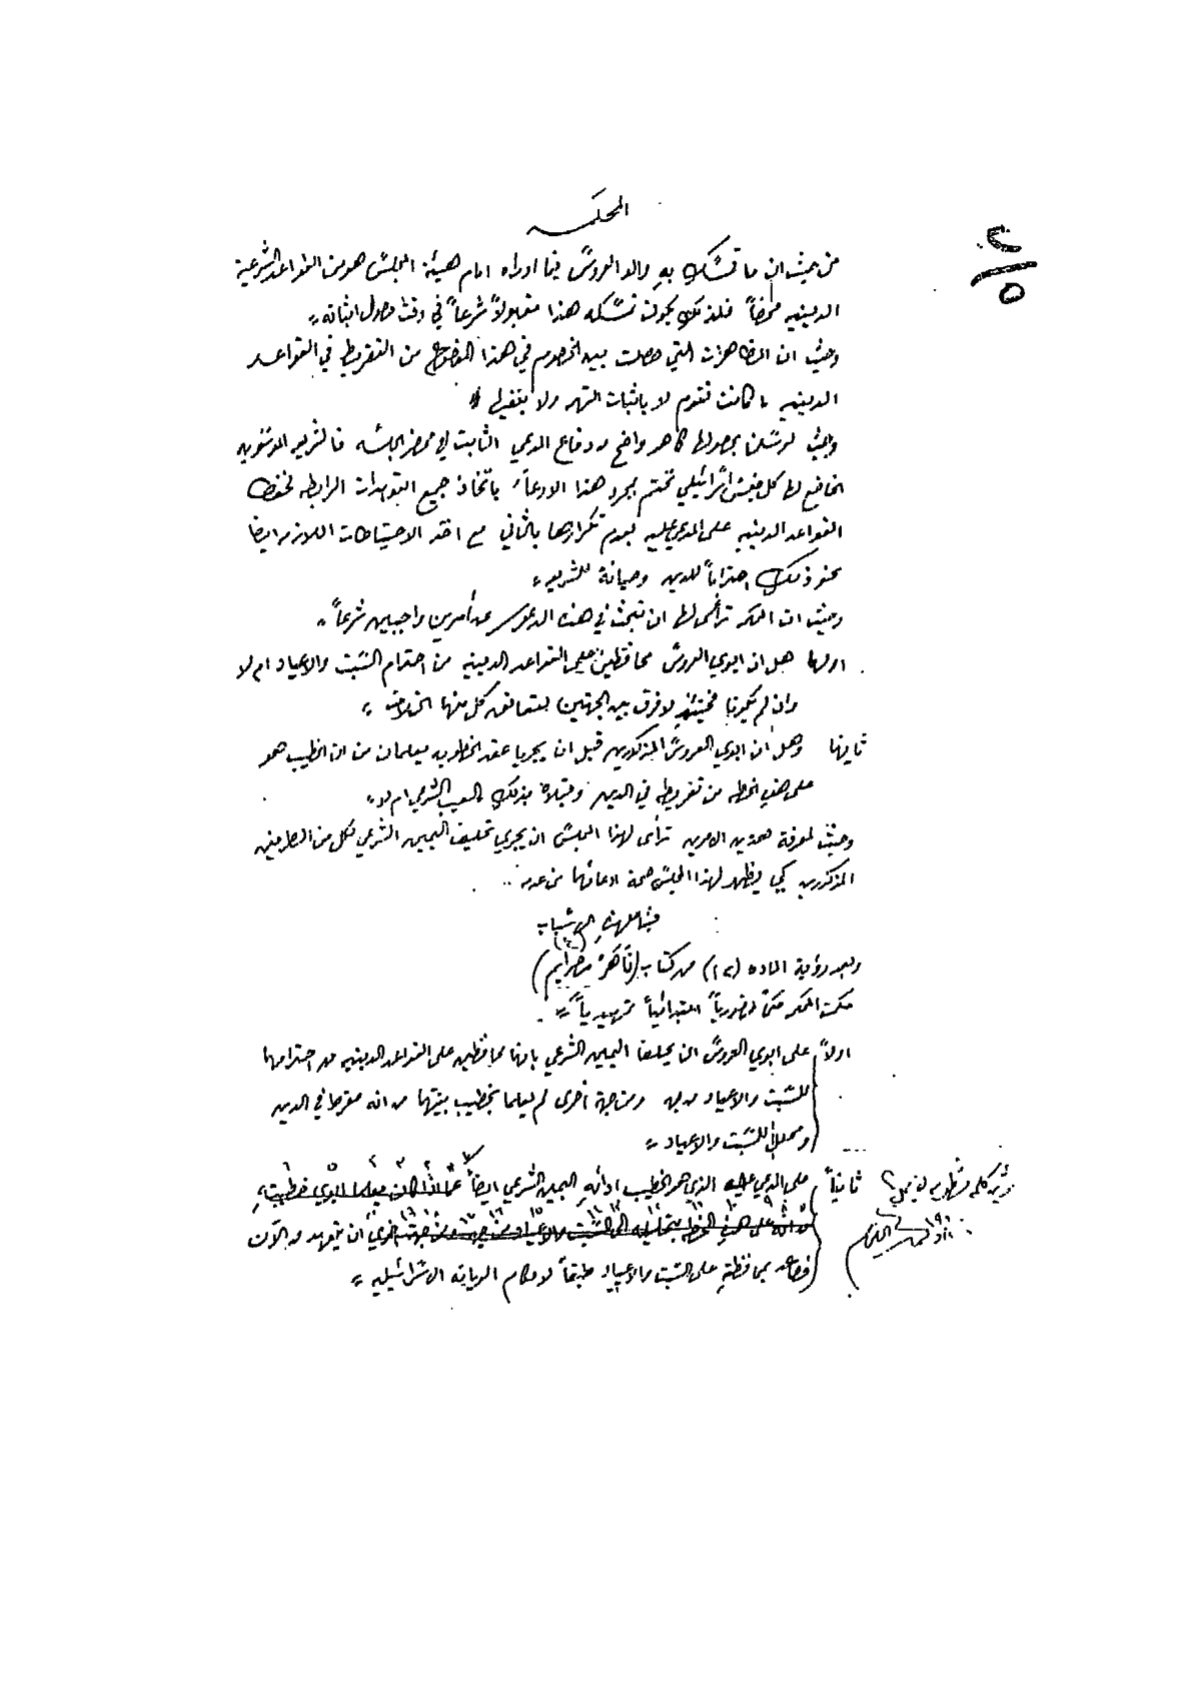 ٢
٥
المحكمه
من حيث ان ما تمسّك به والد العروس فيما اوراه امام هيئة المجلس هو من القواعد الشرعية
الدينيه محضاً فلذلك يكون تمسّكه هذا مقبولاً شرعاً في وقت حصول اثباته
وحيث ان التظاهرات التي حصلت بين الخصوم في هذا الموضوع من التفريط في القواعد
الدينيه ما كانت تقوم لا باثبات التهم ولا بنفيها
وحيث بحصولها كما هو واضح من دفاع المدعي الثابت في محضر الجلسه فالشريعه الموسويه
الخاضع لها كل جنس اسرائيلي تحتم بمجرد هذا الادعاء باتخاذ جميع التعهدات الرابطه لحفظ
القواعد الدينيه على المدعي عليه لعدم تكرارها بالثاني مع اخذ الاحتياطات اللازمه ايضا
نحو ذلك احتراماً للدين وصيانة للشريعه
وحيث ان المحكمه ترائى لها ان تبحث في هذه الدعوى عن أمرين واجبين شرعاً
اولها هل ان ابوي العروس محافظين على القواعد الدينيه من احترام السّبت والاعياد ام لا
وان لم يكونا فحينئذٍ لا فرق بين الجهتين كل منها
ثانيها وهل ان ابوي العروس المذكورين قبل ان يجريا عقد الخطوبه يعلمان من ان الخطيب هو
على هذه الخطه من تفريطه في الدين بذلك العيب الشرعي ام لا
وحيث لمعرفة هذين الامرين ترأى لهذا المجلس ان يجري تحليف اليمين الشرعي لكل من الطرفين
المذكورين كي يظهر لهذا المجلس صحة ادعائها من عدمه
فبناء على هذه الاسباب
وبعد رؤية الماده (١٢) من كتاب (نَاهَر مِصْرَايِم)
حكمت المحكمه حكماً حضورياً ابتدائياً تمهيدياً
اولاً على ابوي العروس ان يحلفا اليمين الشرعي بانها محافظين على القواعد الدينيه من احترامها
للسّبت والاعياد من جهه ومن جهة أخرى لم يعلما بخطيب بنتها من انه مفرط في الدين
ومحلل للسّبت والاعياد
ثانياً على المدعي عليه الذي هو الخطيب ادائهِ اليمين الشرعي ايضاً عمّا اذا كان يعلما ابوي خطيبته
من انه على هذه الخطه بتحليله الى السّبت والاعياد من جهه ومن جهة اخرى ان يتعهد من الآن
فصاعد بمحافظته على السّبت والاعياد طبقاً لاحكام الديانه الاسرائيليه